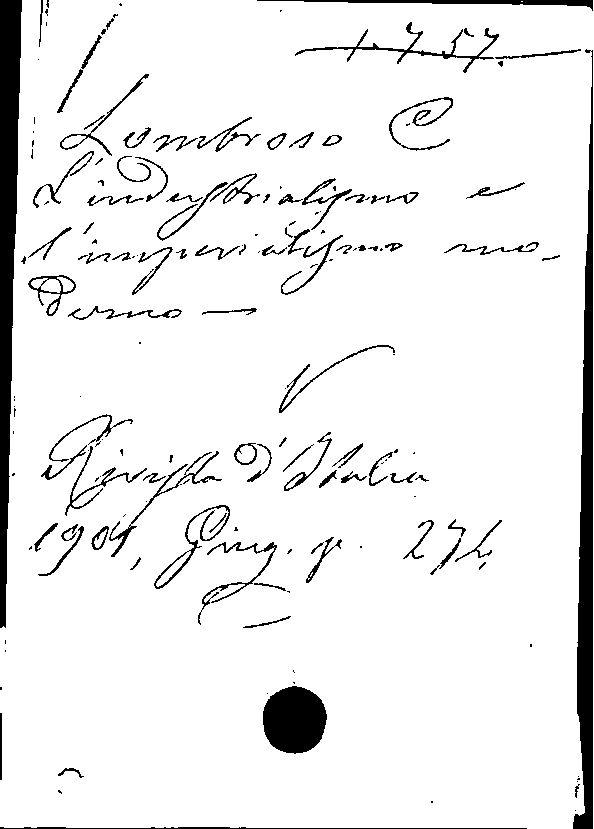 1.7.57.
Lombroso C
L'industrialismo e
l'imperialismo mo-
derno —
V
Rivista d'Italia
1904, Giug. p.